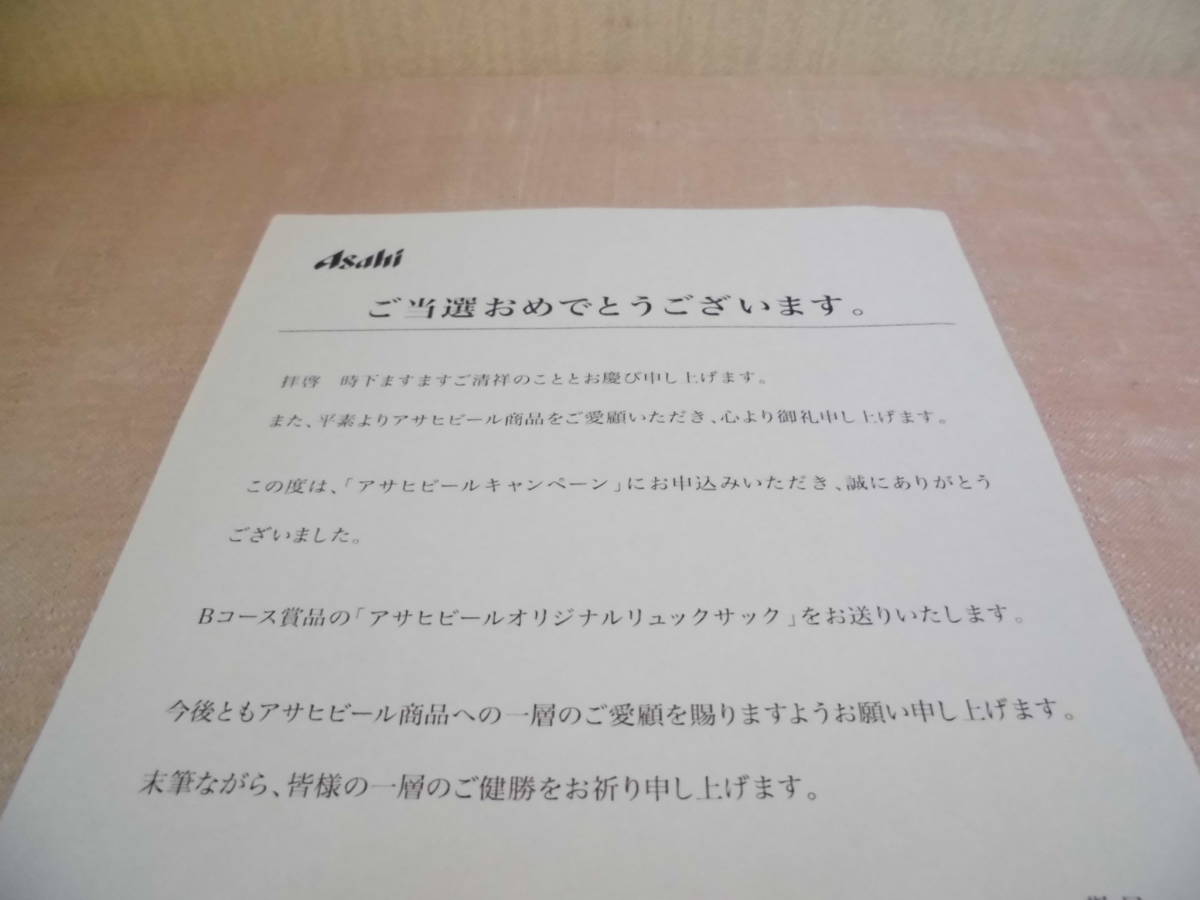 Asahi
ご当選おめでとうございます。
拝啓　時下ますますご清祥のこととお慶び申し上げます。
また、平素よりアサヒビール商品をご愛顧いただき、心より御礼申し上げます。
この度は、「アサヒビールキャンペーン」にお申込みいただき、誠にありがとう
ございました。
Bコース賞品の「アサヒビールオリジナルリュックサック」をお送りいたします。
今後ともアサヒビール商品への一層のご愛顧を賜りますようお願い申し上げます。
末筆ながら、皆様の一層のご健勝をお祈り申し上げます。